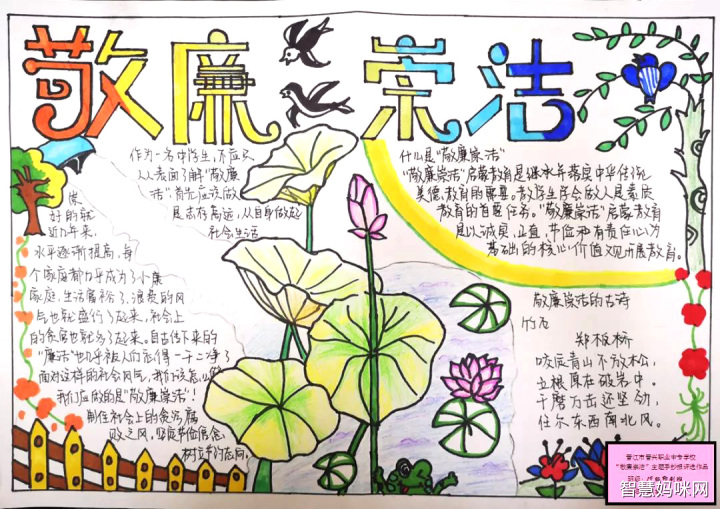 敬廉崇洁
作为一名中学生,不应只
从表面了解"敬廉
洁"首先应该做
是志存高远,从自身做起
社会生活
好的就
近几年来,
水平逐渐提高,每
个家庭都几乎成为了小康
家庭,生活富裕了,浪费的风
气也就盛行了起来,社会上
的贪腐也就多了起来。自古传下来的
"廉洁"也几乎被人们忘得一干二净了
面对这样的社会风气,我们该怎么做
我们应做的是"敬廉崇洁"!
制住社会上的贪污腐
败之风,坚定节俭信念,
树立节约志向
什么是"敬廉崇洁"
"敬廉崇洁"启蒙教育是继承年落是中华传统
美德教育的需要。教学生学会做人是素质
教育的首要任务。"敬廉崇洁"启蒙教育
是以诚实,正直,节俭和有责任心为
基础的核心价值观开展教育。
敬廉崇洁的古诗
竹石
郑板桥
咬定青山不放松,
立根原在破岩中。
千磨万击还坚劲,
任尔东西南北风。
晋江市晋兴职业中专学校
"敬廉崇洁"主题手抄报评选作品
智慧妈咪网